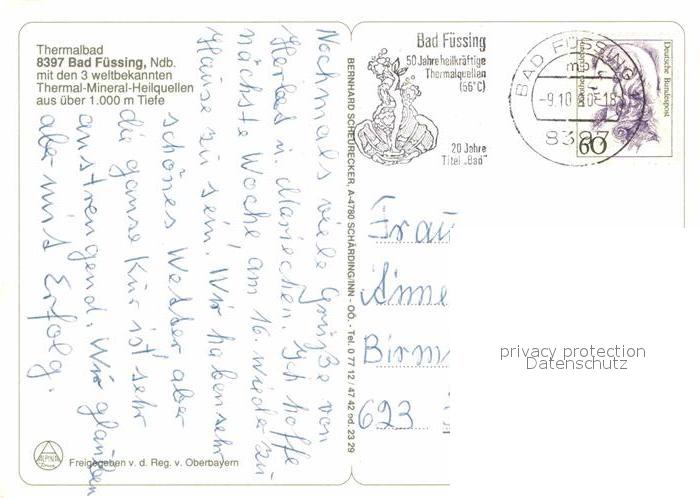 Thermalbad
8397 Bad Füssing, Ndb.
mit den 3 weltbekannten
Thermal-Mineral-Heilquellen
aus über 1.000 m Tiefe
Nochmals viele Grüße von
Herbert u. Mariechen. Ich hoffe
nächste Woche, am 16. wieder zu
Hause zu sein. Wir haben sehr
schönes Wetter aber
die ganze Kur ist sehr
anstrengend. Wir glauben
aber mit Erfolg.
Freigegeben v. d. Reg. v. Oberbayern
BERNHARD SCHEURECKER, A-4780 SCHÄRDING/INN - OÖ. - Tel. 0 77 12 / 47 42 od. 23 29
Bad Füssing
50 Jahre heilkräftige
Thermalquellen
(56°C)
20 Jahre
Titel „Bad"
BAD FÜSSING
8397
Deutsche Bundespost
60
Frau
Anne
Birm
623
privacy protection
Datenschutz